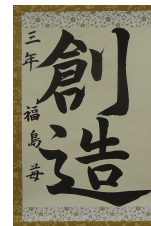 創造
三年 福島苺